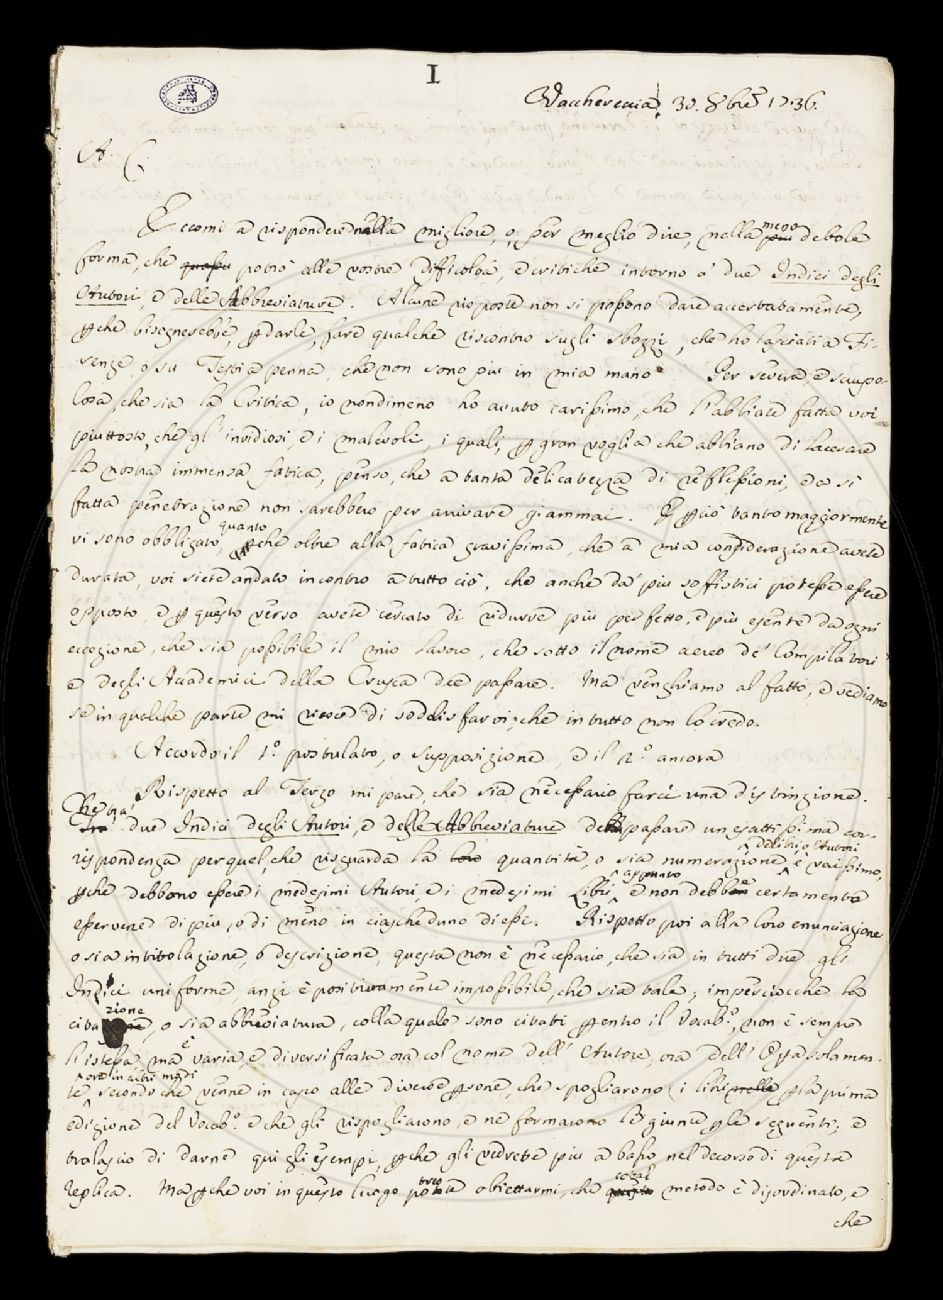 I
Vacchereccia 30. 8bre 1736.
A. C.
Eccomi a rispondere nella migliore, o, per meglio dire, nella meno debole
forma, che potrò alle vostre difficoltà, e critiche intorno a' due Indici degli
Autori, e delle Abbreviature. Alcune risposte non si possono dare accertatamente,
pchè bisognerebbe, p darle, fare qualche riscontro sugli sbozzi, che ho lasciati a Fi-
renze, o su Testi a penna, che non sono più in mia mano. Per severa e scrupo-
losa, che sia la Critica, io nondimeno ho avuto carissimo, che l'abbiate fatta voi
piuttosto, che gl'invidiosi, e i malevoli, i quali, p gran voglia che abbiano di lacerare
la nostra immensa fatica, penso, che a tanta delicatezza di reflessioni, e a sì
fatta penetrazione non sarebbero per arrivare giammai. E pciò tanto maggiormente
vi sono obbligato, quanto chè oltre alla fatica gravissima, che a mia considerazione avete
durata, voi siete andato incontro a tutto ciò, che anche da' più soffistici potesse essere
opposto, e p questo verso avete cercato di ridurre più perfetto, e più esente da ogni
eccezione, che sia possibile il mio lavoro, che sotto il nome aereo de' Compilatori
e degli Accademici della Crusca dee passare. Ma venghiamo al fatto, e vediamo
se in qualche parte mi riesce di soddisfarvi; che in tutto non lo credo.
Accordo il 1.º postulato, o supposizione, e il 2.º ancora
Rispetto al Terzo mi pare, che sia necessario farci una distinzione.
Che tra' due Indici degli Autori, e delle Abbreviature debba passare un esattissima cor-
rispondenza per quel, che risguarda la quantità, o sia numerazione de' libri, o Autori è verissimo,
pchè debbono essere i medesimi Autori, e i medesimi Libri appunto e non debbe certamente
esservene di più, o di meno in ciascheduno di essi. Rispetto poi alla loro enunciazione
o sia intitolazione, o descrizione, questa non è necessario, che sia in tutti due gli
Indici uniforme, anzi è positivamente impossibile, che sia tale; imperciocchè la
citazione, o sia abbreviatura, colla quale sono citati p entro il Vocab.º, non è sempre
l'istessa, ma è varia, e diversificata ora col nome dell'Autore, ora dell'Opa solamen-
te, ora in altri modi secondo che venne in casco alle diverse psone, che spogliarono i libri p la prima
edizione del Vocab.º e che gli rispogliarono, e ne formarono le giunte p le seguenti; e
tralascio di darne qui gli esempi, pchè gli vedrete più a basso nel decorso di questa
replica. Ma pchè voi in questo luogo potreste obiettarmi, che cotal metodo è disordinato, e
che